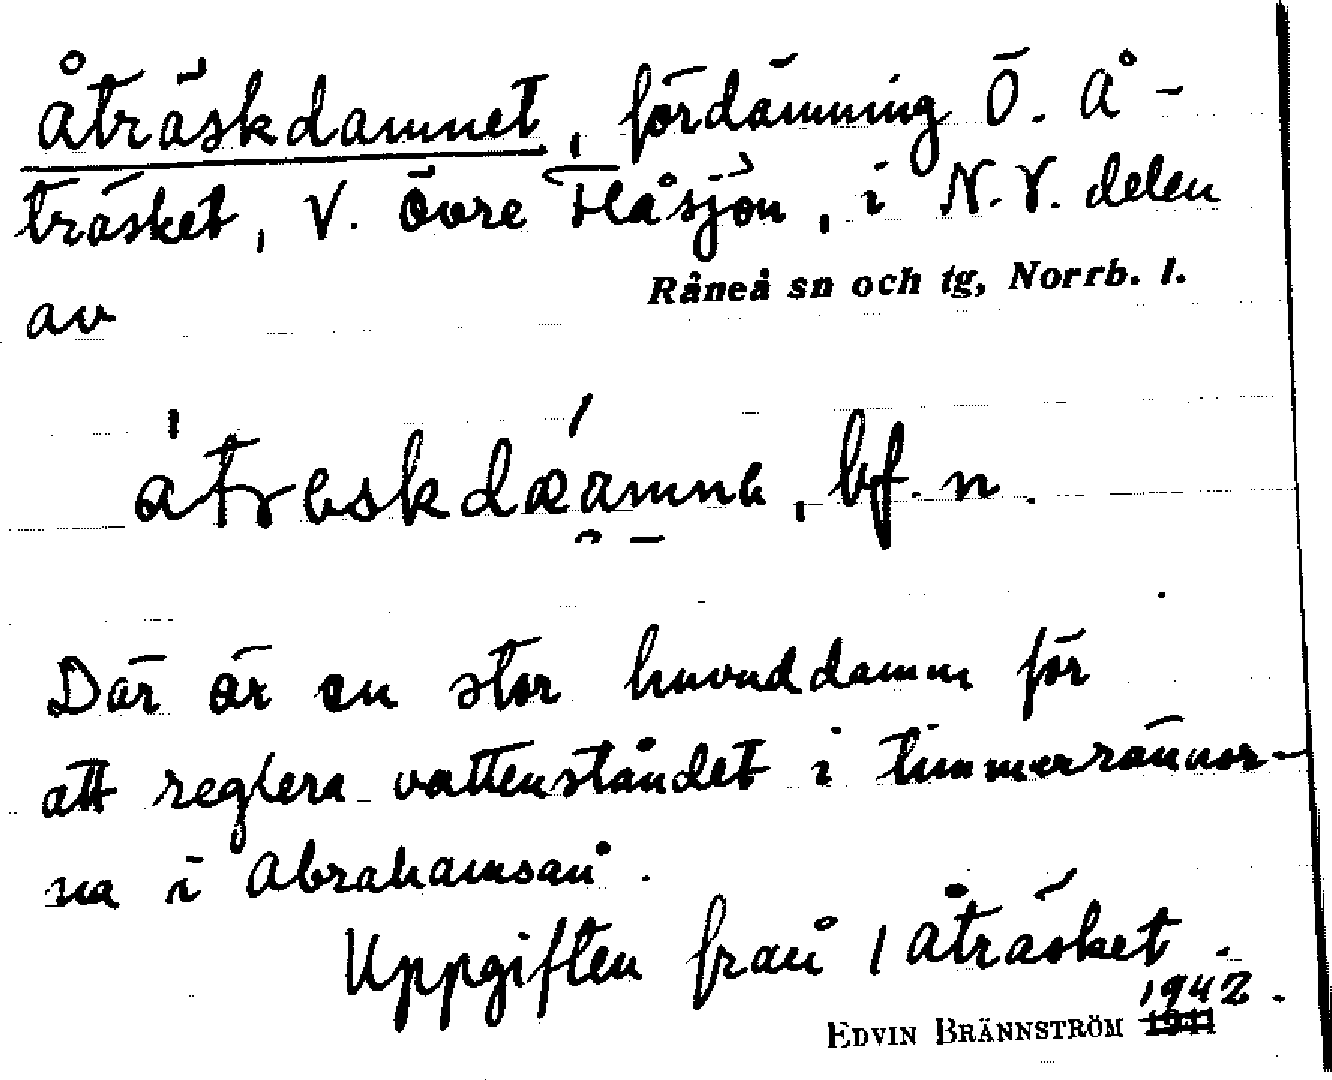 Åträskdamnet, fördämning Ö. Å-
träsket, V. Övre Håsjön, i N.V. delen
av Råneå sn och tg, Norrb. l.
bf. n.
Där är en stor huvuddamm för
att reglera vattenståndet i timmerrännor-
na i Abrahamsån.
Uppgiften från 1 Åträsket.
1942.
EDVIN BRÄNNSTRÖM 1941